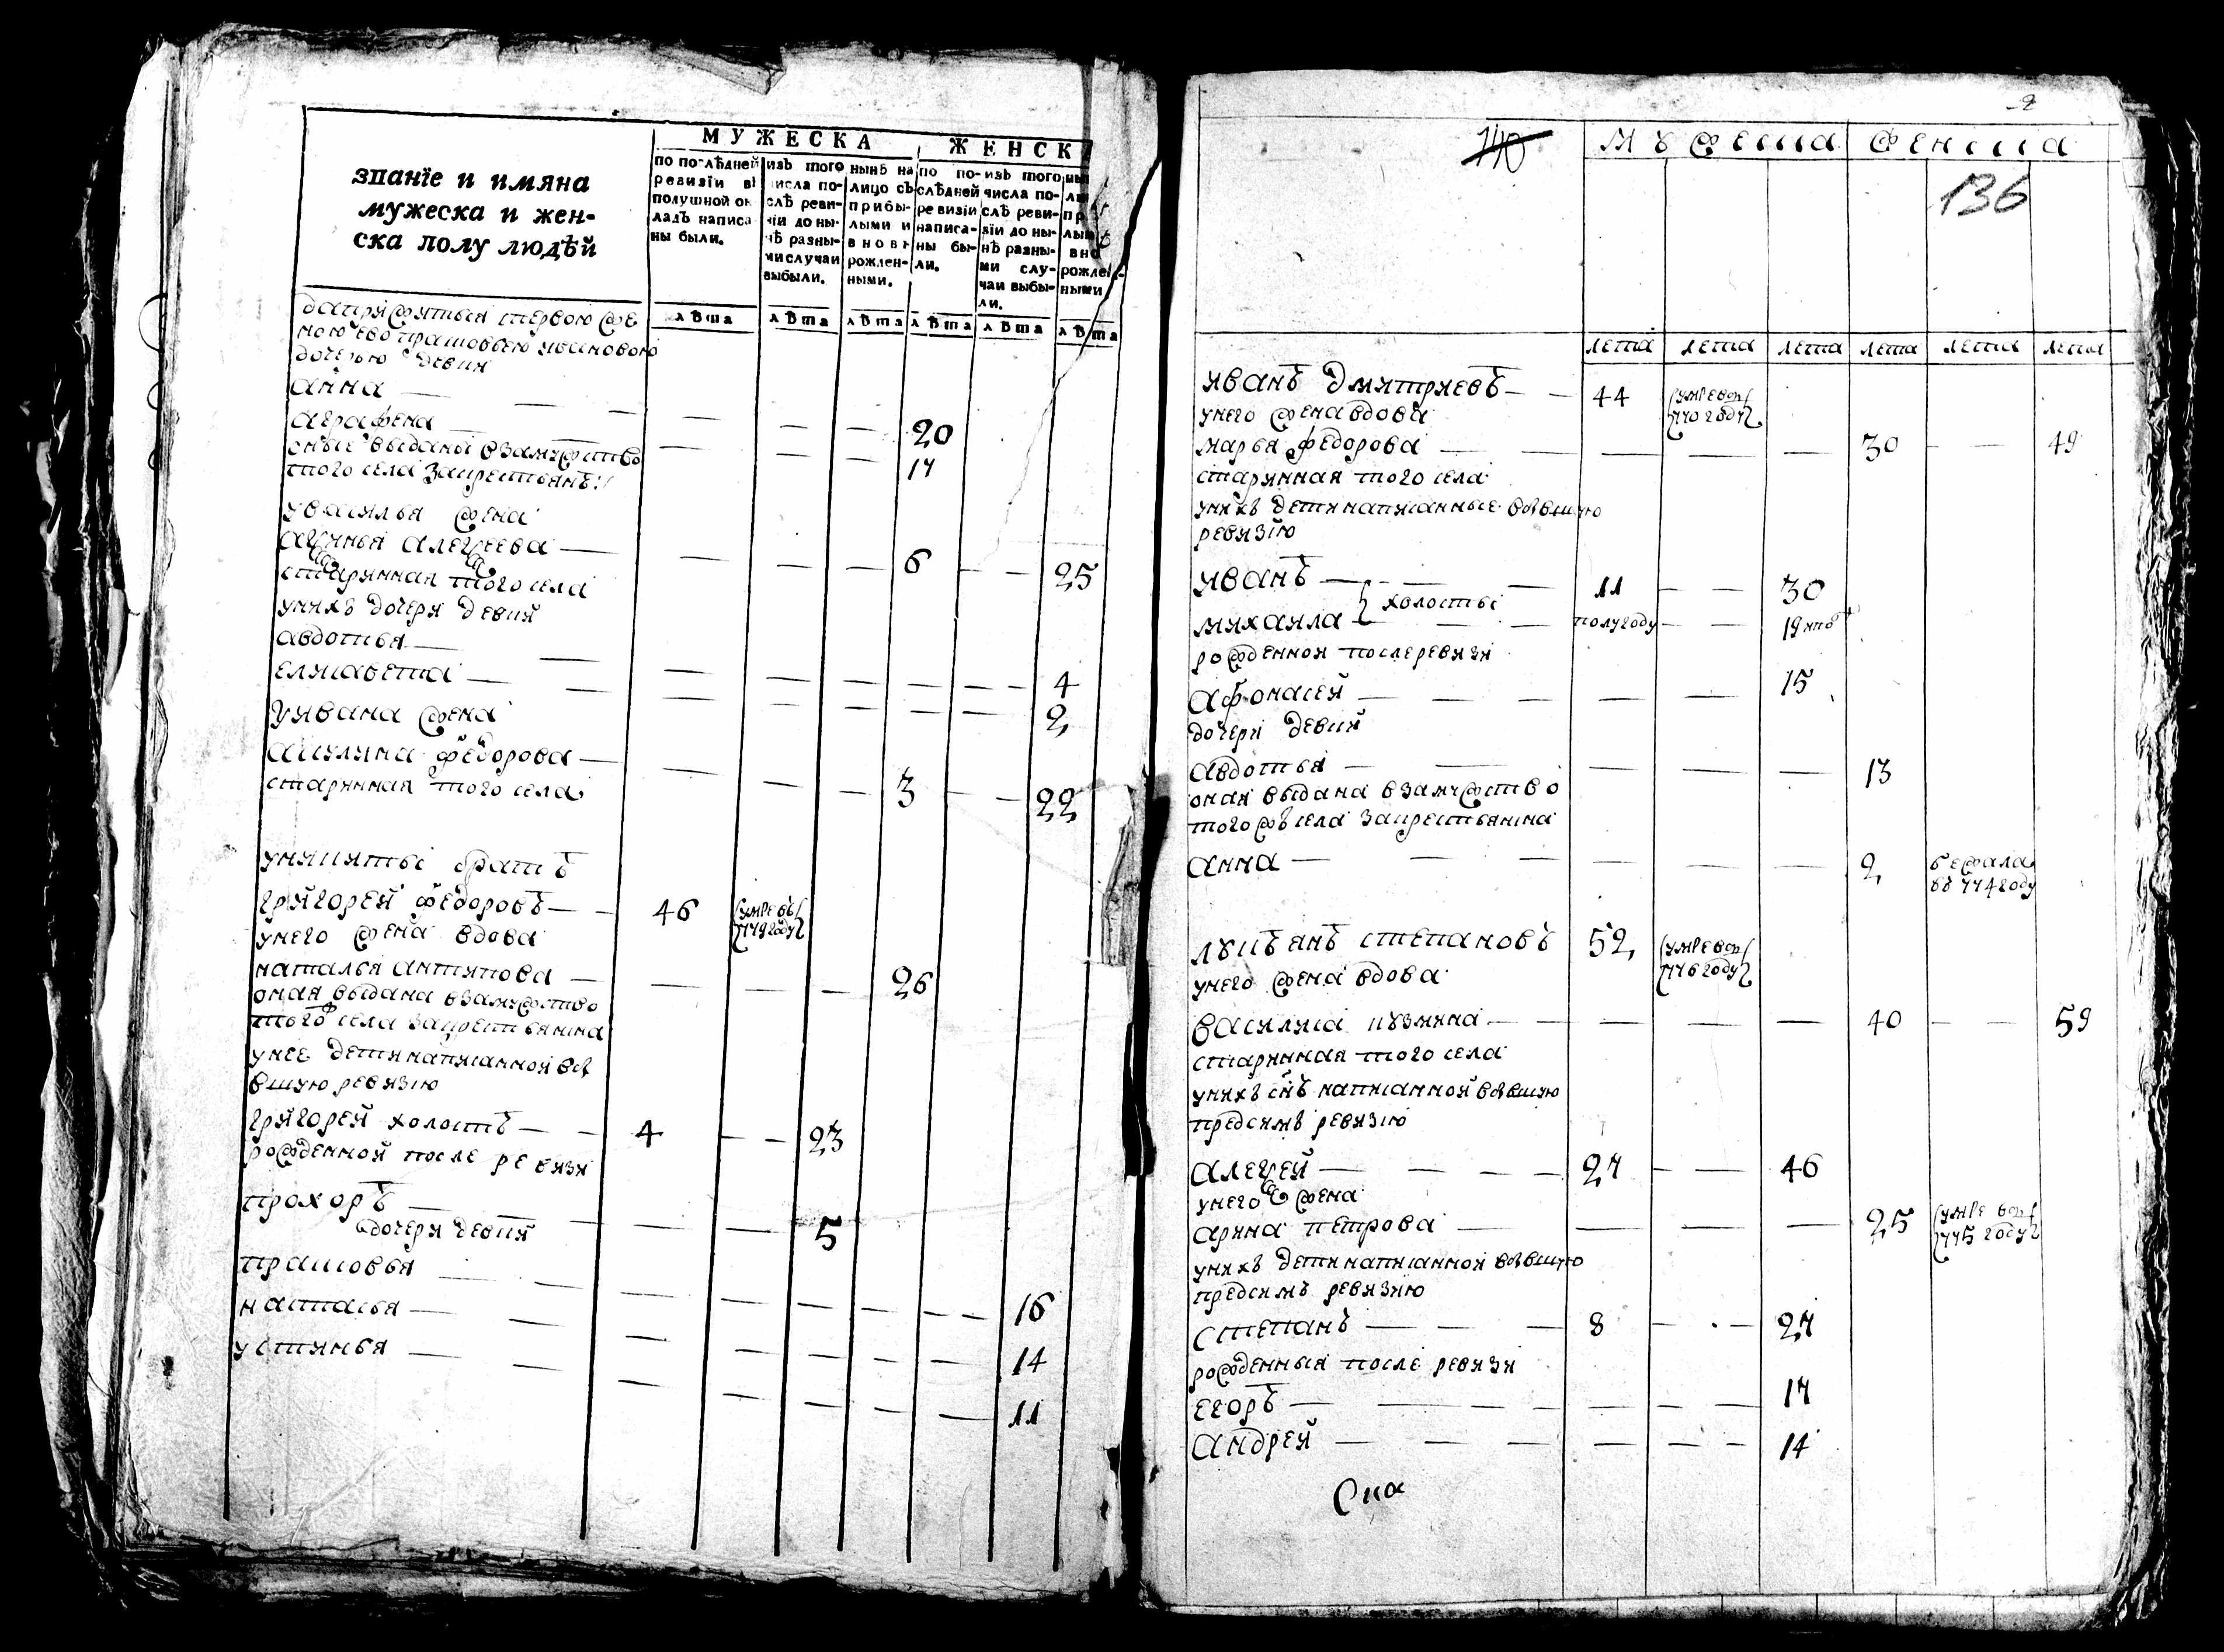 МУЖЕСКА ЖЕНСК
званїе и имяна
мужеска и жен-
ска полу людѣй
по послѣдней
ревизїи въ
подушной ок
ладъ написа
ны были.
изъ того
числа по-
слѣ реви-
зїи до ны-
нѣ разны-
ми случаи
выбыли.
нынѣ на
лицо съ
прибы-
лыми и
вновь
рожден-
ными.
по по-
слѣдней
ревизїи
написа-
ны бы-
ли.
изъ того
числа по-
слѣ реви-
зїи до ны-
нѣ разны-
ми слу-
чаи выбы-
ли.
лѣта лѣта лѣта лѣта лѣта лѣта
прижитыя спервою же
ною ево прасковьею ивановою
дочерью девки
анна — — — — — — 20
аграфена — — — — 17
оные выданы взамужство
того села закрестьянъ
уваси́лья жена
аксинья алексеева — — — — 6 — — 25
старинная того села
унихъ дочери девки
авдотья — — — — — — — — 4
елисавета — — — — — — — — 2
уивана жена
акулина федорова — — — — 3 — — 22
старинная того села
уникиты братъ
григорей федоровъ — — 46 умре въ 779 году
унего жена вдова
наталья антипова — — — — 26
оная выдана взамужство
того села закрестьянина
унее дети написанной въ
бвшую ревизию
григорей холостъ — — 4 — — 23
рожденной после ревизи
прохоръ — — — — — 5
дочери девки
прасковья — — — — — — — — 16
наталья — — — — — — — — 14
устинья — — — — — — — — 11
140
мужеска женска
136
лета лета лета лета лета лета
иванъ дмитриевъ — — 44 умре въ 770 году
унего жена вдова
марья федорова — — — — 30 — — 49
старинная того села
унихъ дети написанные въбвшую
ревизїю
иванъ — — — 11 — — 30
холосты
михаила — — — полугоду — — 19
рожденной послеревизи
афонасей — — — — — 15
дочери девки
авдотья — — — — — — 13
оная выдана взамужство
тогожъ села закрестьянина
анна — — — — — — 2 бежала въ 774 году
лукъянъ степановъ 52 умре въ 776 году
унего жена вдова
василиса кузмина — — — — — 40 — — 59
старинная того села
унихъ снъ написанной въбвшую
предсимъ ревизїю
алексей — — — — 27 — — 46
унего жена
арина петрова — — — — 25 умре въ 775 году
унихъ дети написанной въбвшую
предсимъ ревизию
степанъ — — — 8 — — 27
рожденныя после ревизи
егоръ — — — — — — 17
андрей — — — — — — 14
ска